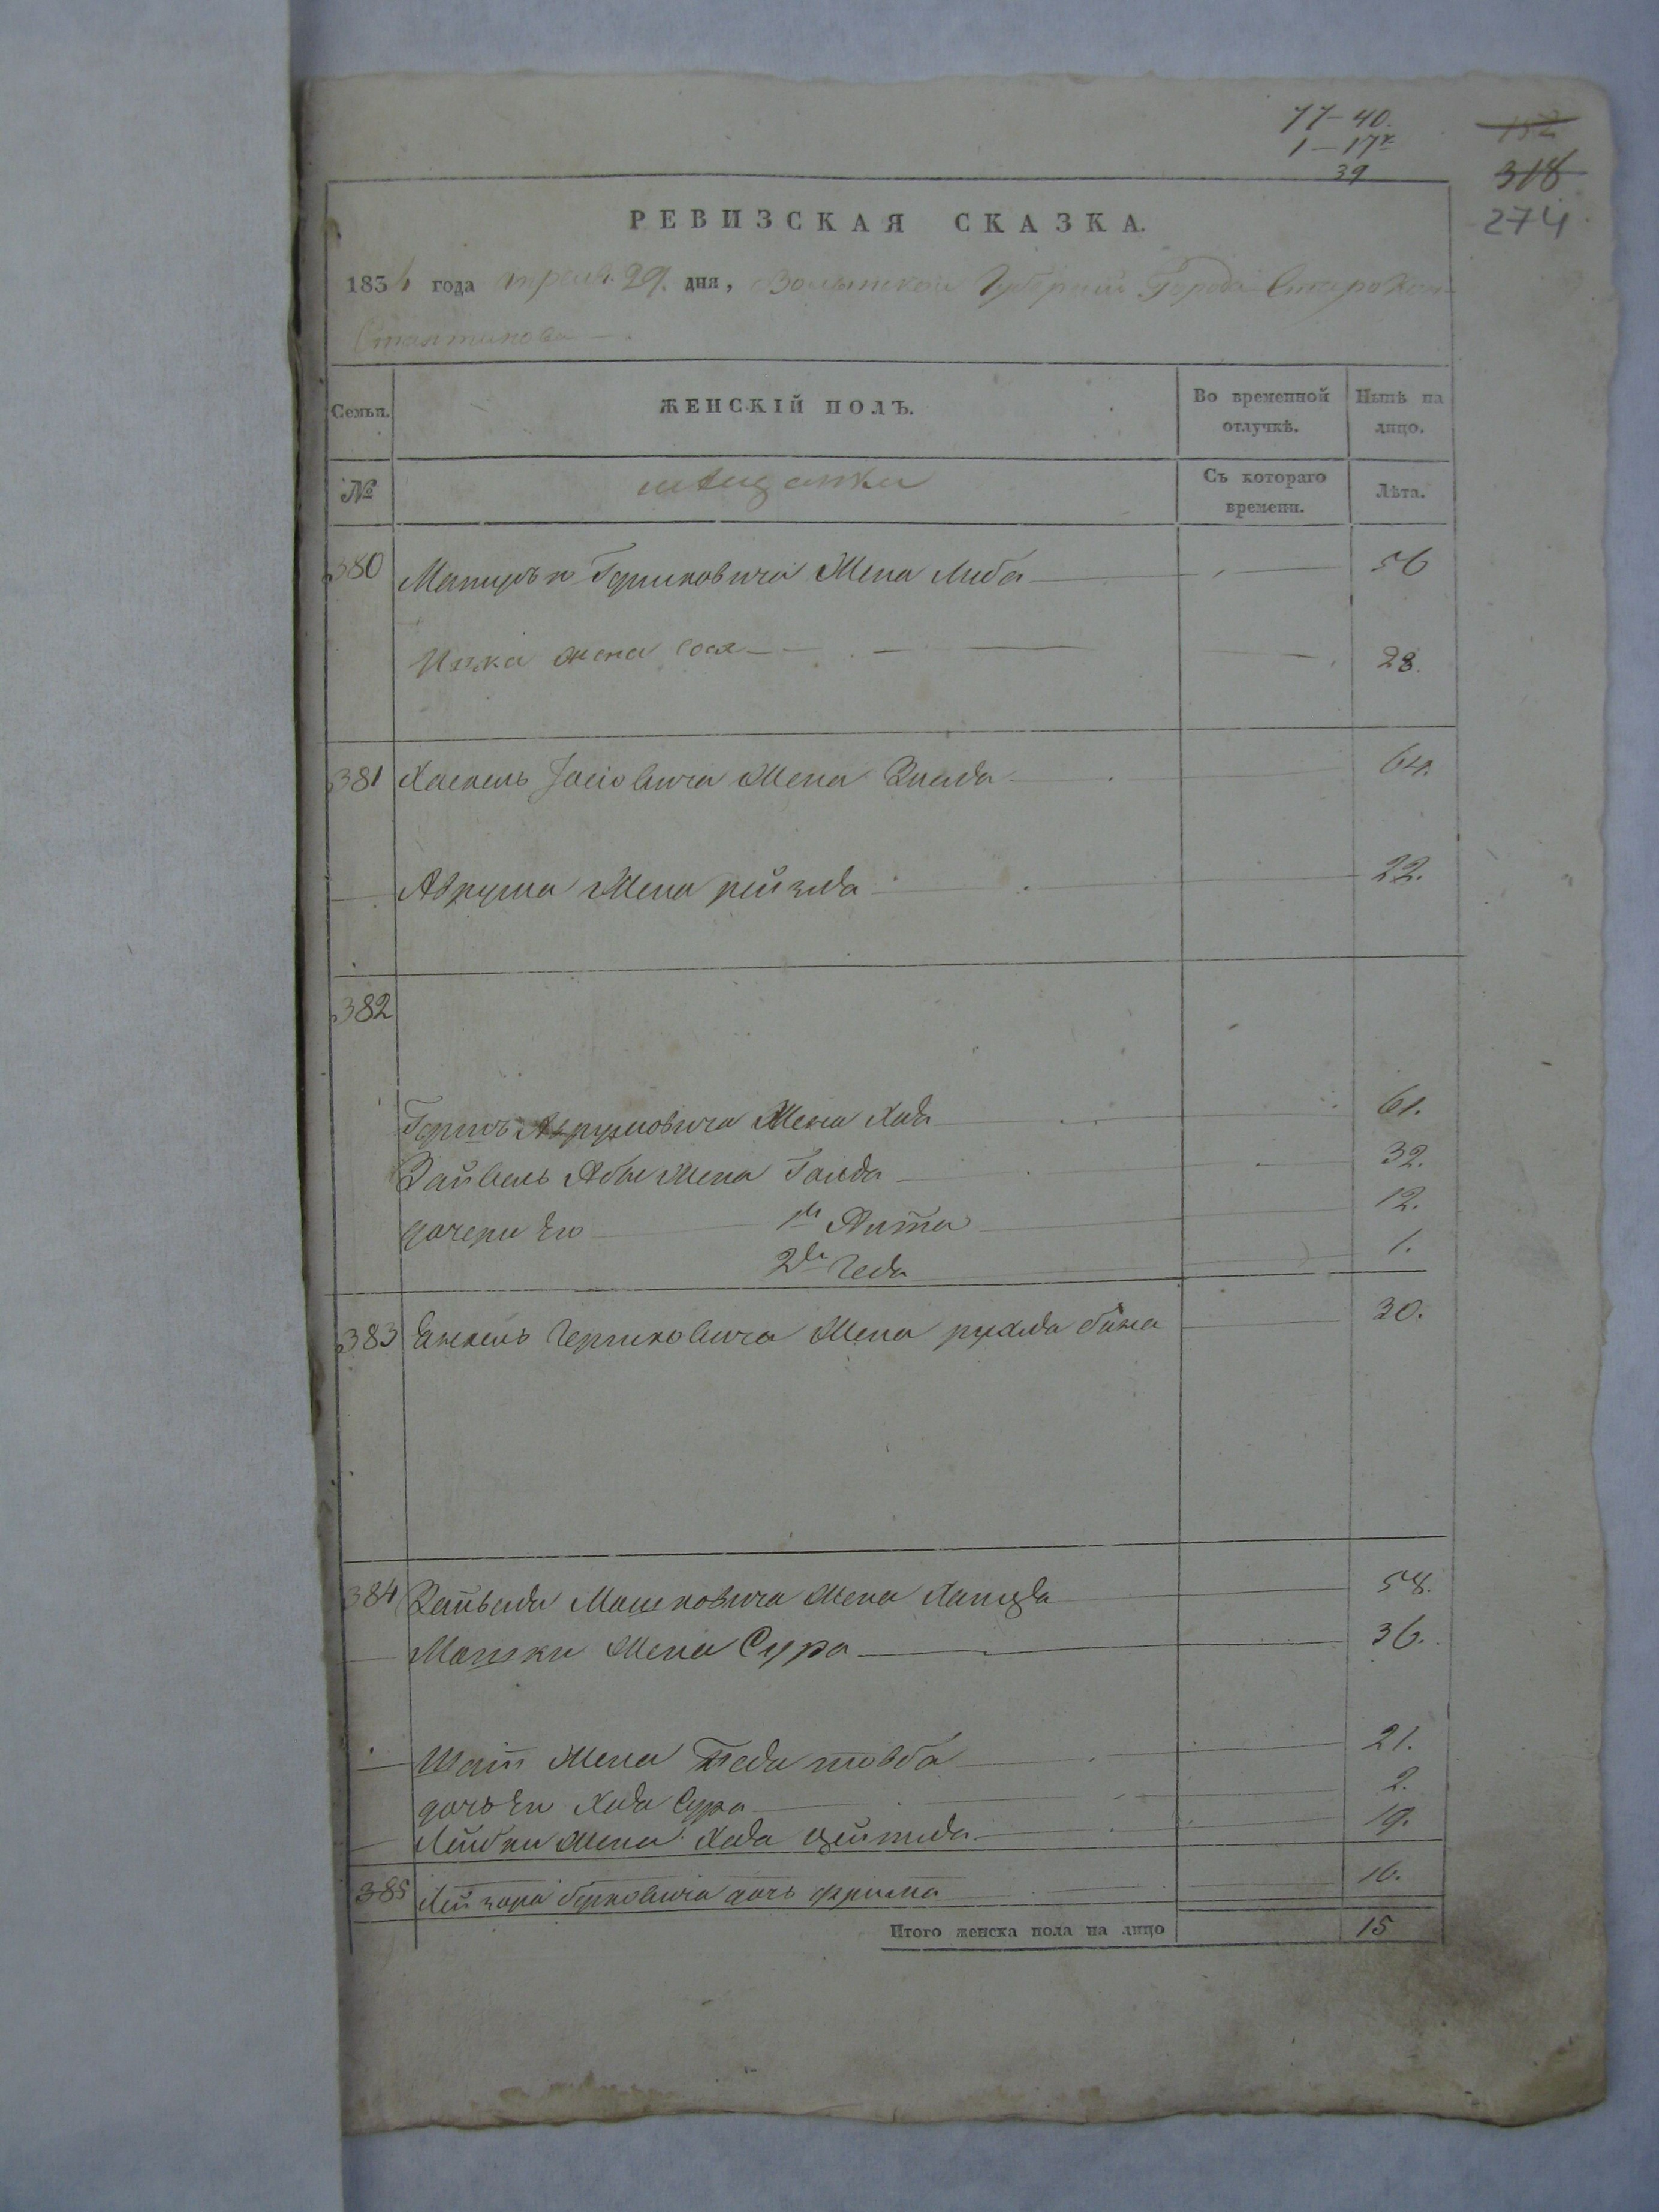 77-40.
1-17
39
152
318
274
РЕВИЗСКАЯ СКАЗКА.
183 года апреля 29. дня, Волынской Губернии Города Старокон
стантинова
Семьи. ЖЕНСКІЙ ПОЛЪ. Во временной отлучкѣ. Нынѣ на лицо.
№ мещанки Съ котораго времени. Лѣта.
380 Гершковича Жена Либа 56
Ицка жена Сося 28.
381 Хаскель Іосіовича Жена Злада 64.
Аврума Жена рейзла 22.
382
Гершъ Аврумовича Жена Хая 61.
Зайвель Абы Жена Гольда 32.
дочери Его 1я 12.
2я 1.
383 Янкель Гершковича Жена рухля 30.
384 Мошковича Жена 58.
Мошки Жена Сура 36.
Жена товба 21.
дочь Ея Хая Сура 2.
Лейбы Жена Хая 19.
385 Лейзора Берковича дочь фрима 16.
Итого женска пола на лицо 15